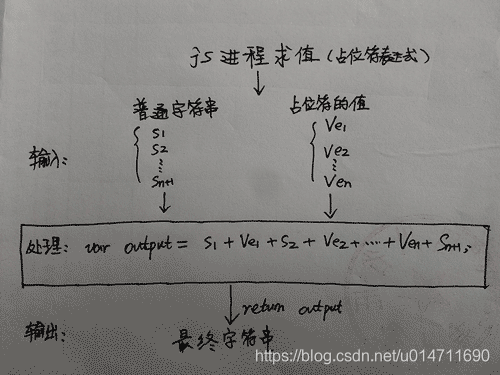 js进程求值(占位符表达式)
普通字符串 占位符的值
S1 Ve1
输入: S2 Ve2
⋮ ⋮
Sn+1 Ven
处理: var output = S1 + Ve1 + S2 + Ve2 + ··· + Ven + Sn+1;
return output
输出: 最终字符串
https://blog.csdn.net/u014711690